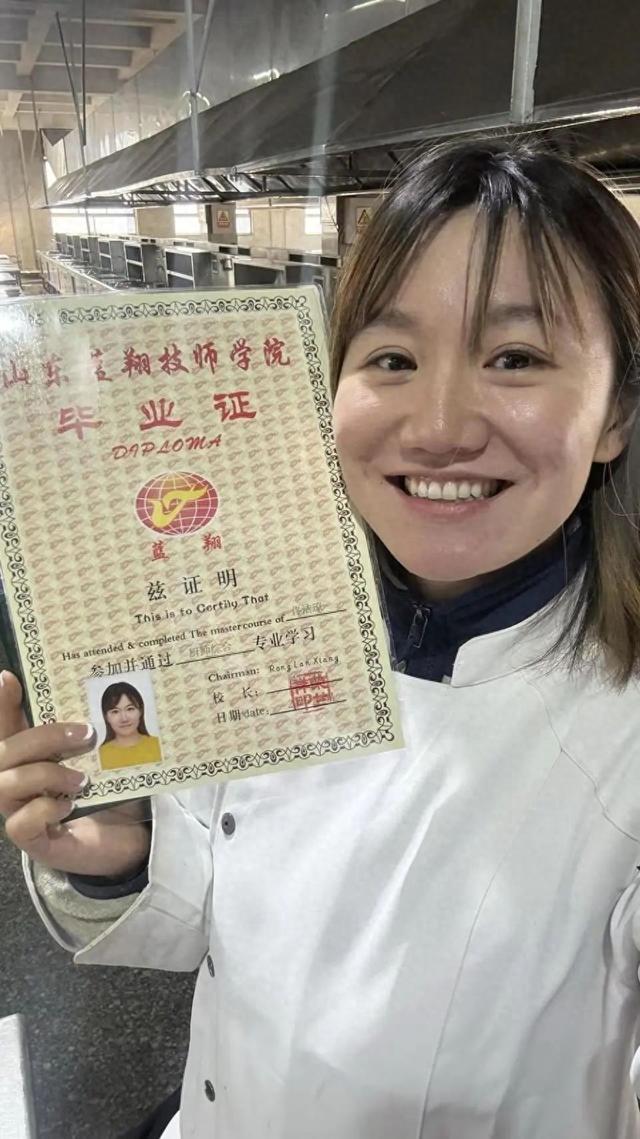 山东蓝翔技师学院
毕业证
DIPLOMA
蓝翔
兹证明
This is to Certify That
Has attended & completed The master course of
参加并通过 厨师综合 专业学习
Chairman: Rong Lan Xiang
校 长:
日期date: